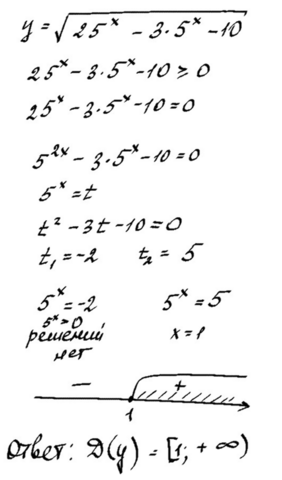 y = √(25ˣ - 3·5ˣ - 10)
25ˣ - 3·5ˣ - 10 ≥ 0
25ˣ - 3·5ˣ - 10 = 0
5²ˣ - 3·5ˣ - 10 = 0
5ˣ = t
t² - 3t - 10 = 0
t₁ = -2 t₂ = 5
5ˣ = -2 5ˣ = 5
5ˣ > 0,
решений x = 1
нет
- +
1
Ответ: D(y) = [1; +∞)